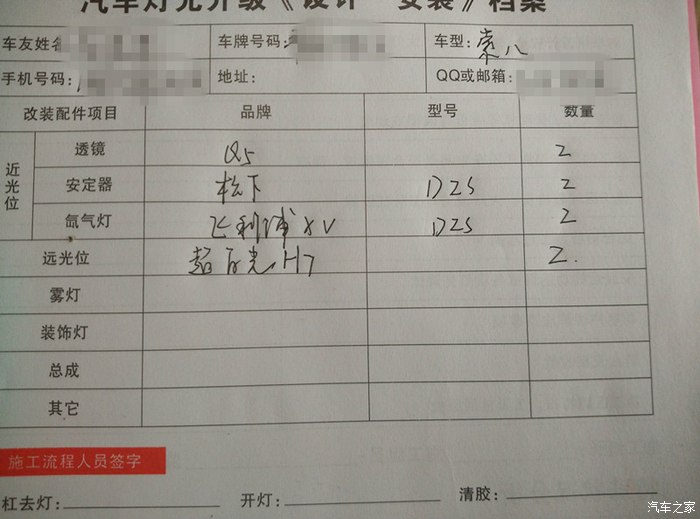 汽车灯光升级《设计 安装》档案
车友姓名 车牌号码: 车型: 索八
手机号码: 地址: QQ或邮箱:
改装配件项目 品牌 型号 数量
近光位 透镜 Q5 2
安定器 松下 D2S 2
氙气灯 飞利浦XV D2S 2
远光位 超百光H7 2.
雾灯
装饰灯
总成
其它
施工流程人员签字
杠去灯: 开灯: 清胶:
汽车之家